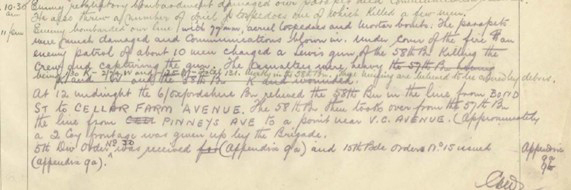 10.30 Enemy retaliatory bombardment damaged our parapets and communications
He also threw a number of aerial torpedoes one of which killed a few men.
11 pm Enemy bombarded our line with 77mm, aerial torpedoes and mortar bombs. The parapets
were much damaged and communications blown in. Under cover of the fire an
enemy patrol of about 10 men charged a Lewis gun of the 58th Bn killing the
crew and capturing the gun. The casualties were heavy the 57th Bn
being
At 12 midnight the 6/Oxfordshire Bn relieved the 58th Bn in the line from BOND
ST to CELLAR FARM AVENUE. The 58th Bn then took over from the 57th Bn
the line from PINNEYS AVE to a point near V.C. AVENUE. (Approximately
a 2 Coy frontage was given up by the Brigade.
5th Div Order No 30 was received (Appendix 9a) and 15th Bde Order No 15 issued
(appendix 9a).
Appendix
9a